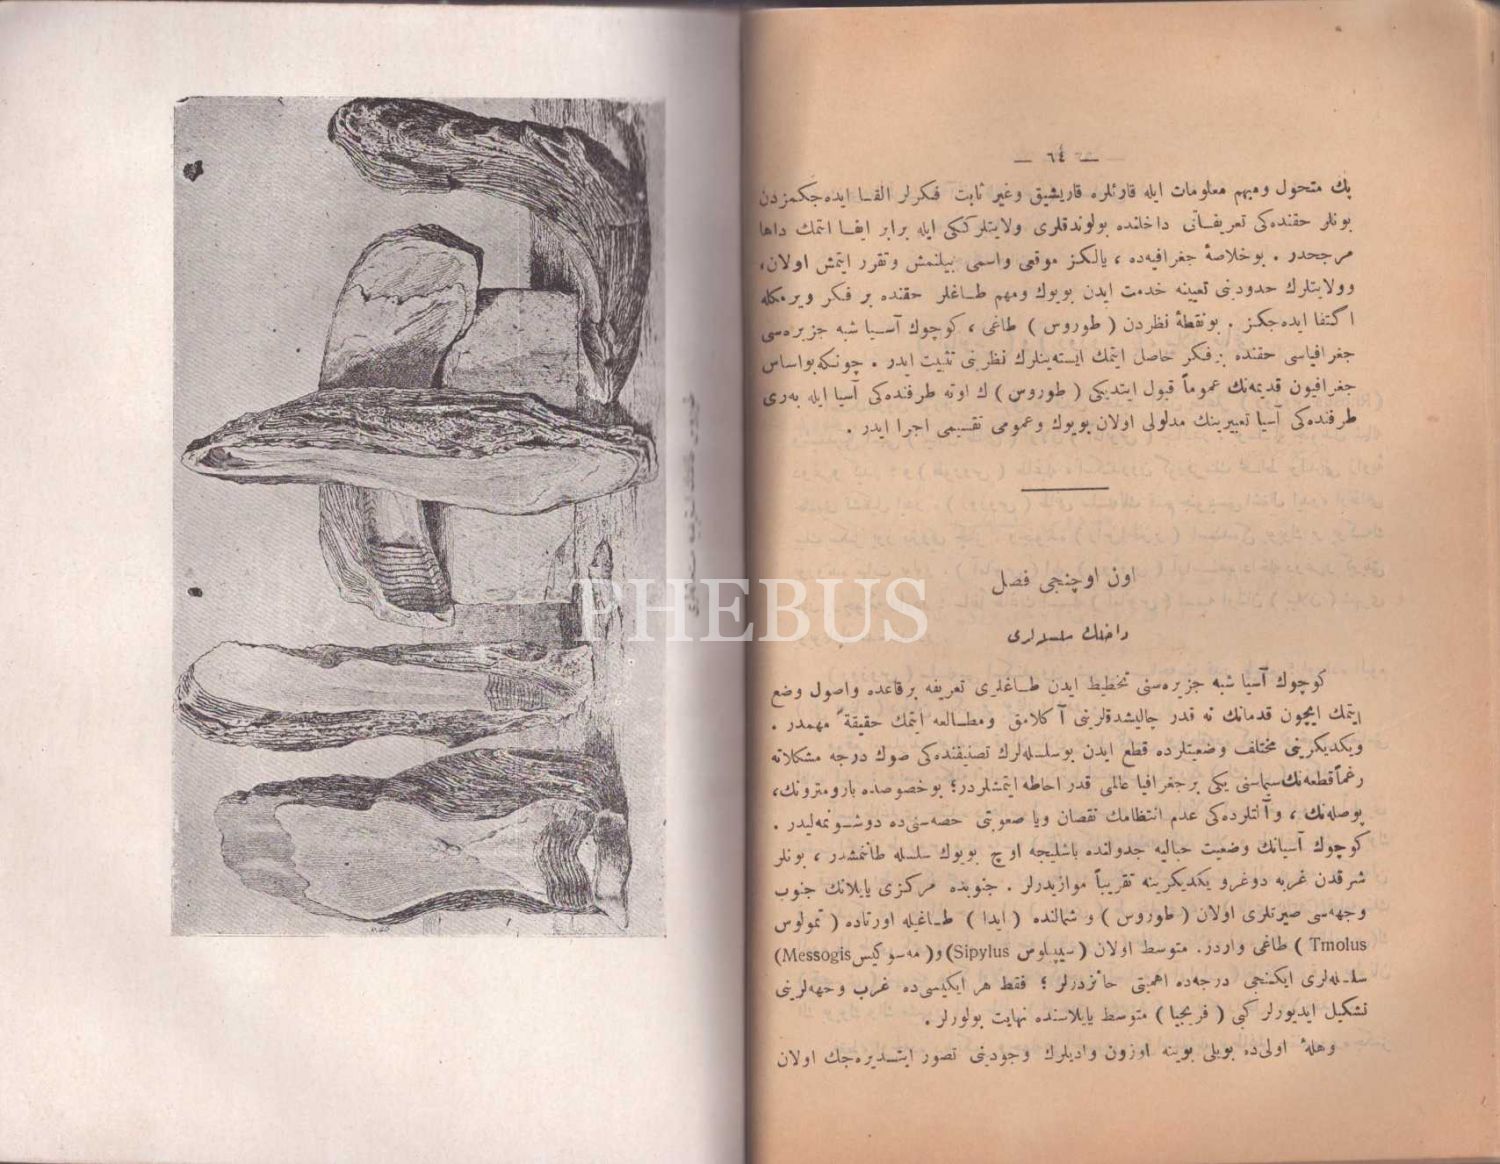 — ٦٤ —
پك متحول ومبهم معلومات ايله قارئلره قاريشيق وغير ثابت فكرلر القا ايده‌جكمزدن
بونلر حقنده‌كی تعريفاتی داخلنده بولوندقلری ولايتلركنكی ايله برابر ايفا ايتمك داها
مرجحدر . بوخلاصهٔ جغرافيه‌ده ، يالكز موقعی واسمی بيلنمش وتقرر ايتمش اولان،
وولايتلرك حدودينی تعيينه خدمت ايدن بويوك ومهم طاغلر حقنده بر فكر ويرمكله
اكتفا ايده‌جكز . بونقطهٔ نظردن ( طوروس ) طاغی ، كوچوك آسيا شبه جزيره‌سی
جغرافياسی حقنده برفكر حاصل ايتمك ايسته‌ينلرك نظرينی تثبيت ايدر . چونكه‌بواساس
جغرافيون قديمه‌نك عموماً قبول ايتديكی ( طوروس ) ك اوته طرفنده‌كی آسيا ايله به‌ری
طرفنده‌كی آسيا تعبيرينك مدلولی اولان بويوك وعمومی تقسيمی اجرا ايدر .
اون اوچنجی فصل
داخلك سلسله‌لری
كوچوك آسيا شبه جزيره‌سنی تخطيط ايدن طاغلری تعريفه برقاعده واصول وضع
ايتمك ايچون قدمانك نه قدر چاليشدقلرينی آكلامق ومطالعه ايتمك حقيقةً مهمدر .
ويكديكرينی مختلف وضعيتلرده قطع ايدن بوسلسله‌لرك تصنيفنده‌كی صوك درجه مشكلاته
رغماً قطعه‌نك سيماسنی يكی برجغرافيا عالمی قدر احاطه ايتمشلردر؛ بوخصوصده بارومترونك،
پوصله‌نك ، وآلتلرده‌كی عدم انتظامك نقصان ويا صعوبتی حصه‌سنی‌ده دوشونمه‌ليدر .
كوچوك آسيانك وضعيت جباليه جدولنده باشليجه اوچ بويوك سلسله طانمشدر ، بونلر
شرقدن غربه دوغرو يكديكرينه تقريباً موازيدرلر . جنوبده مركزی يايلانك جنوب
وجهه‌سی صيرتلری اولان ( طوروس ) و شمالنده ( ايدا ) طاغيله اورتاده ( تمولوس
Tmolus ) طاغی واردر. متوسط اولان ( سيپلوس Sipylus) و( مه‌سوكيس Messogis)
سلسله‌لری ايكنجی درجه‌ده اهميتی حائزدرلر ؛ فقط هر ايكيسی‌ده غرب وجهه‌لرينی
تشكيل ايديورلر كبی ( فريجيا ) متوسط يايلاسنده نهايت بولورلر .
وهلهٔ اولی‌ده بويلی بوينه اوزون واديلرك وجودينی تصور ايتديره‌جك اولان
PHEBUS